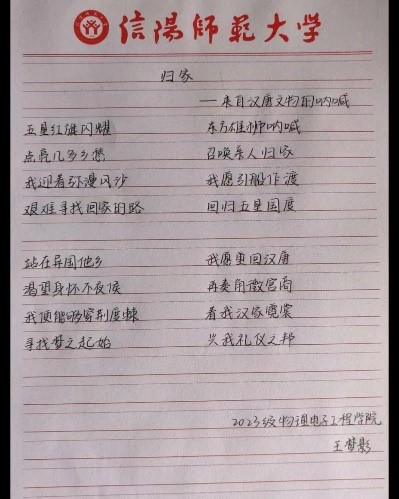 信陽師範大学
归家
——来自汉唐文物的呐喊
五星红旗闪耀 东方雄狮呐喊
点亮几多乡愁 召唤亲人归家
我迎着弥漫风沙 我愿引船作渡
艰难寻找回家的路 回归五星国度
站在异国他乡 我愿重回汉唐
渴望身怀不良侯 再奏角徵宫商
我便能够穿荆度棘 着我汉家霓裳
寻找梦之起始 兴我礼仪之邦
2023级物理电子工程学院
王梦影